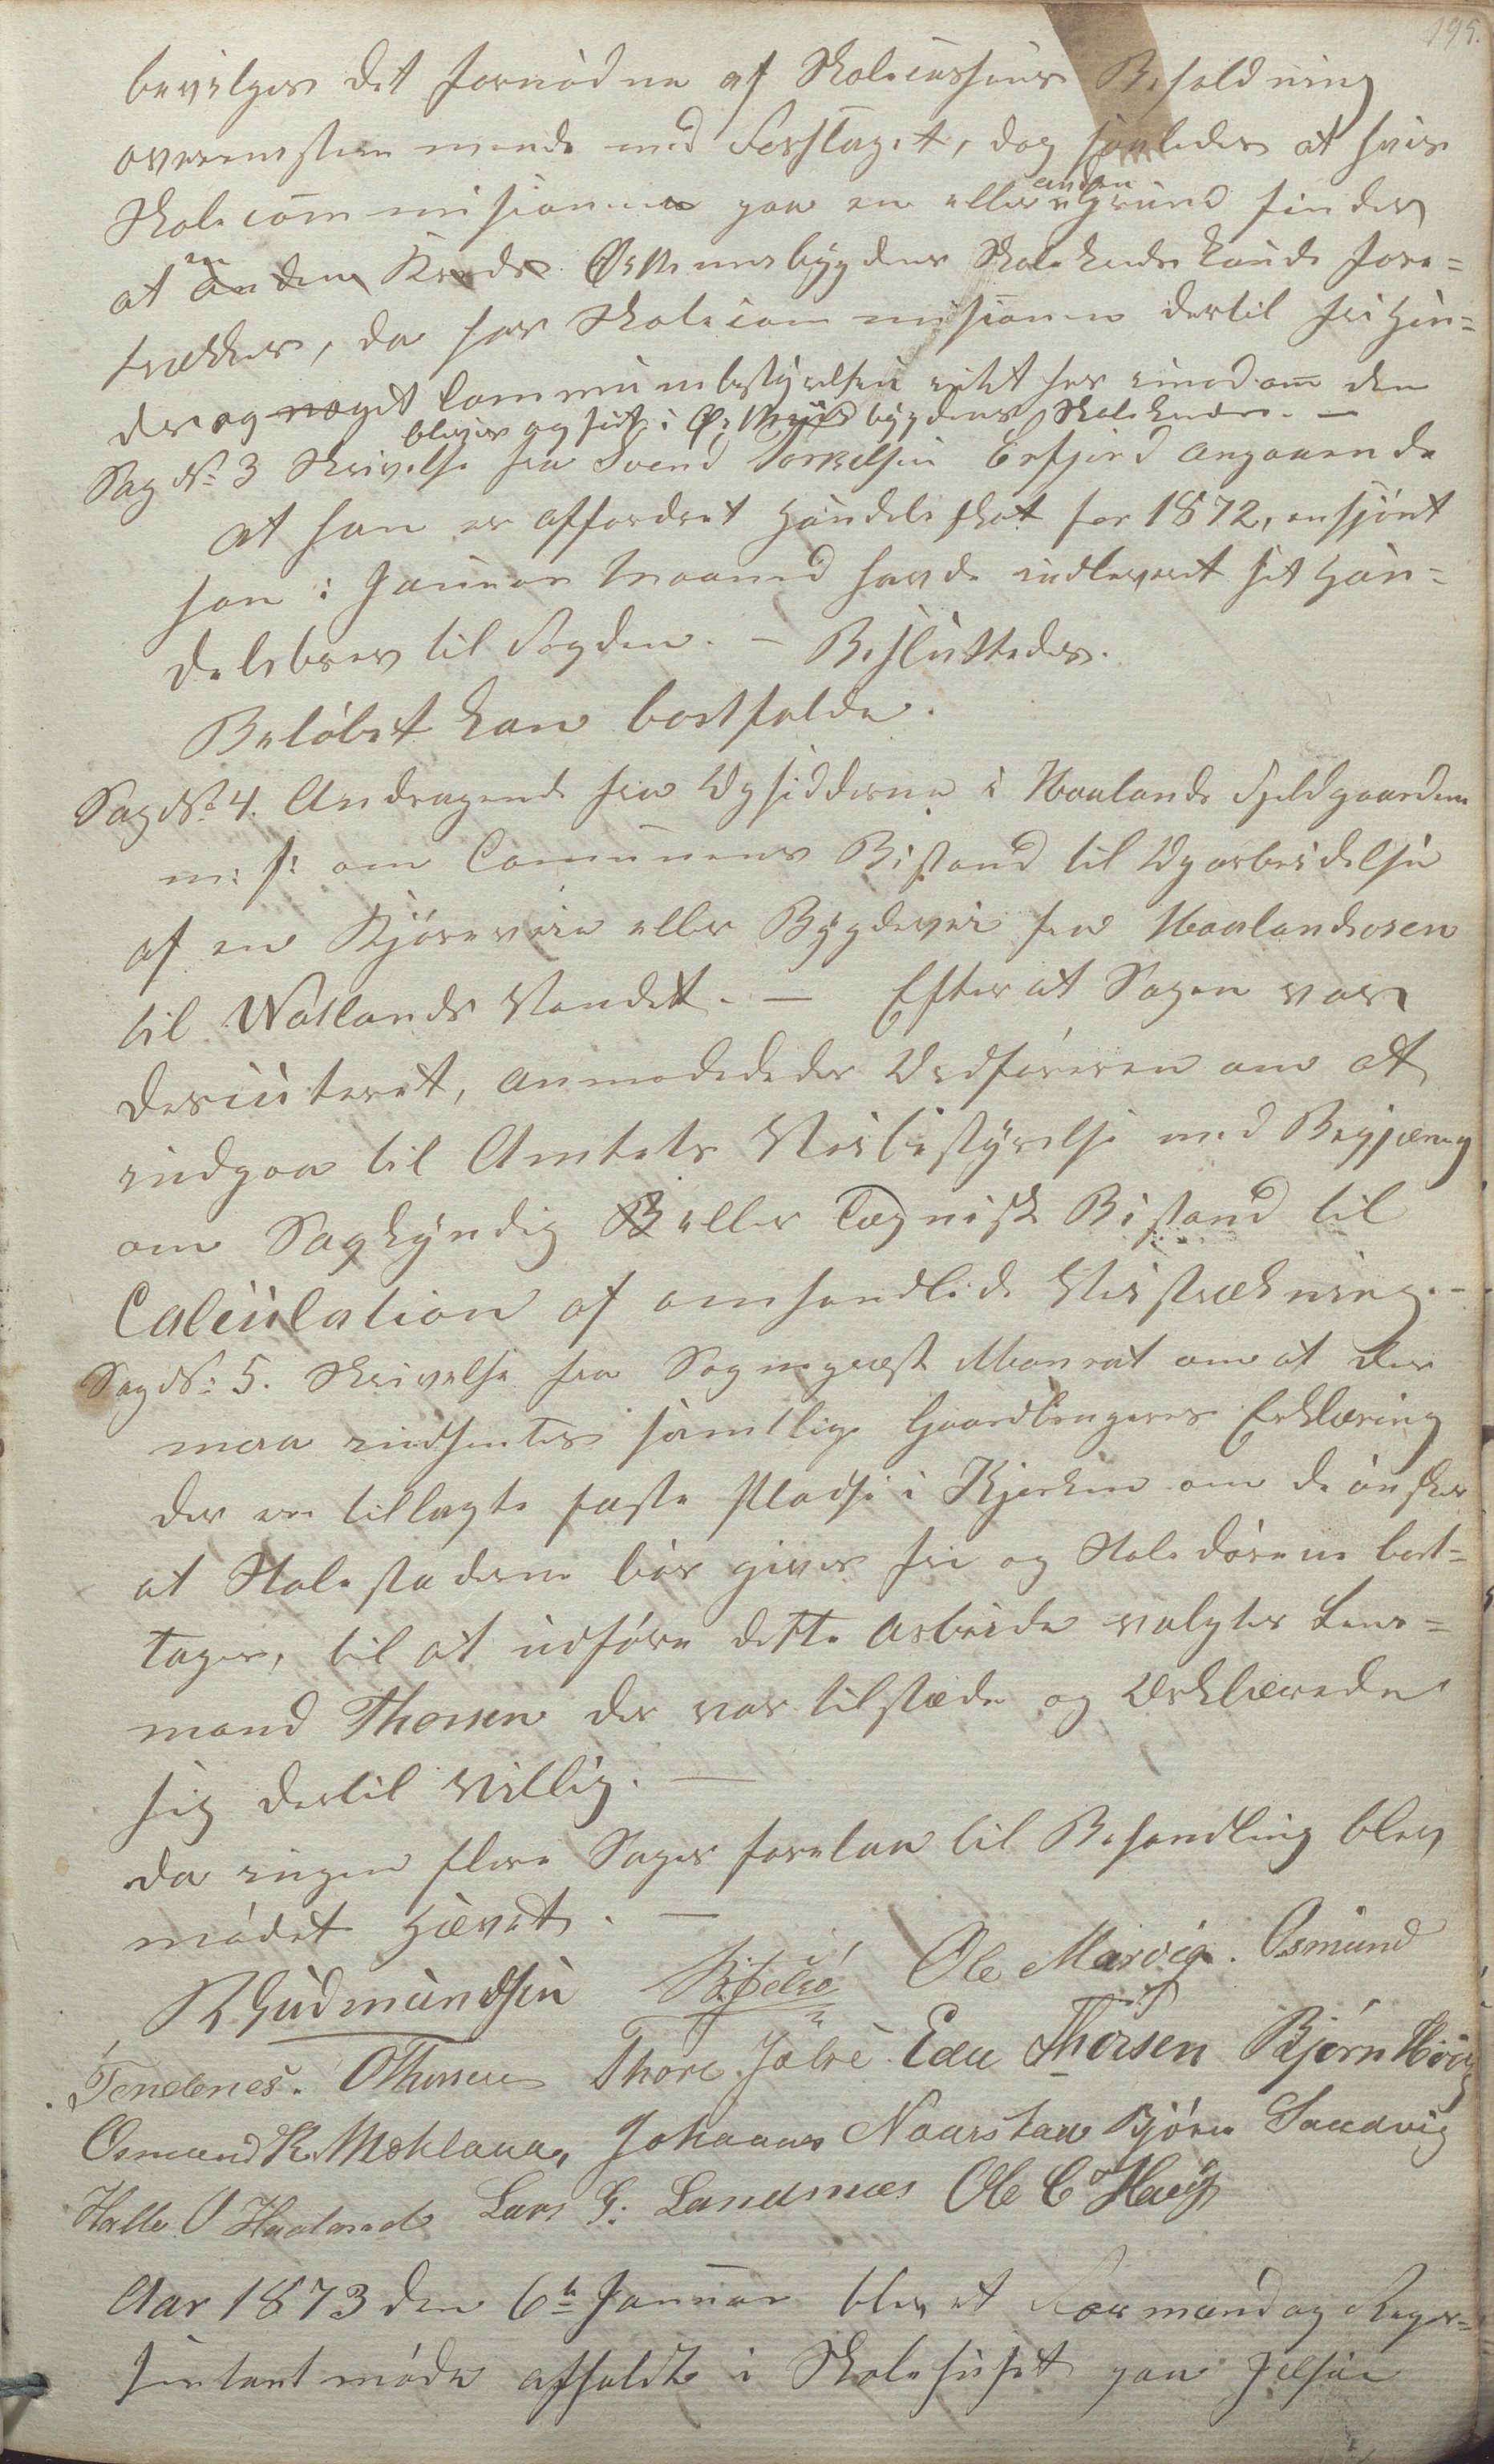 195.
bevilges det fornødne af Skolecassens Beholdning
overensstemmende med Forslaget, dog saaledes at hvis
Skolecommisionen paa en eller anden Grund finder
at en anden Kreds Østennebygdens Skolekreds kunde fore=
trækkes, da har Skolecommisionen dertil fri Hæn=
der og noget Communebestyrelsen intet har imod om den
bliver og sidt i bygdens Skolekreds. —
Sag No 3 Skrivelse fra Svend Torkelsen Erfjord angaaende
at han er affordret Handelsskat for 1872, ensjønt
han i Januar Maaned havde indleveret sit Han=
delsbrev til Fogden. — Besluttedes.
Beløbet kan bortfalde.
Sag No 4. Andragende fra Opsidderne i Haalands Fjeldgaardene
m: f: om Communens Bistand til Oparbeidelse
af en Kjørevei eller Bygdevei fra Haalandsosen
til Vatlands Vandet. — Efter at Sagen var
descuteret, anmodedes Ordføreren om at
indgaa til Amtets Veibestyrelse med Begjæring
om Sagkyndig B eller Tegnisk Bistand til
Calculation af omhandlede Veistrækning. —
Sag No: 5. Skrivelse fra Sogneprest Monrat om at der
maa indhentes samtlige Gaardbrugeres Erklæring
der ere tillagte faste Pladse i Kjerken om de ønsker
at Stolestaderne bør gives fri og Stoledørene bort=
tages, til at udføre dette Arbeide valgtes Lens=
mand Thorsen der var tilstæde og Erklærede
sig dertil Villig. —
da ingen flere Sager forelaa til Behandling blev
mødet Hævet. —
R Gudmundsen B. Jelsø Ole Marvig. Osmund
Tendenes. O Thorsen Thore Jelse. Edu Thorsen Bjørn Høie
Osmund R. Mæhlaua, Johannes Naarstad Bjørn Sandvig
Halle O Haaland Lars G. Landsnæs Ole C Houg
Aar 1873 den 6te Januar blev et Formænd og Repre=
sentantmøde afholdt i Skolehuset paa Jelsøe